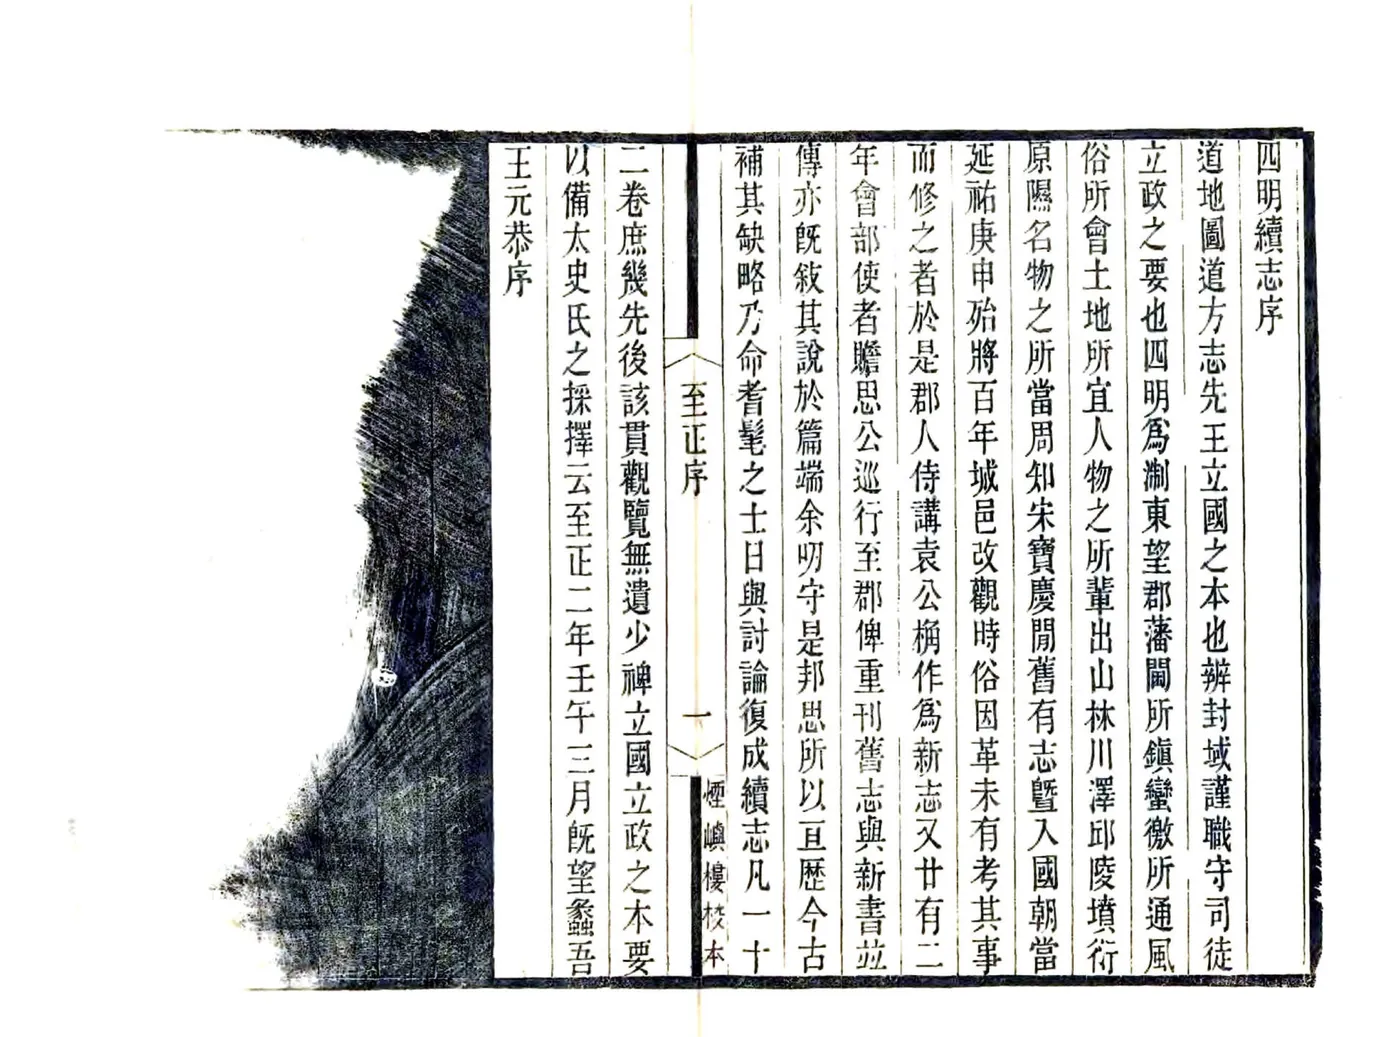 四明續志序
道地圖道方志先王立國之本也辨封域謹職守司徒
立政之要也四明爲淛東望郡藩閫所鎮蠻徼所通風
俗所會土地所宜人物之所輩出山林川澤邱陵墳衍
原隰名物之所當周知宋寶慶閒舊有志暨入國朝當
延祐庚申殆將百年城邑改觀時俗因革未有考其事
而修之者於是郡人侍講袁公桷作爲新志又廿有二
年會部使者贍思公巡行至郡俾重刊舊志與新書並
傳亦旣敍其說於篇端余叨守是邦思所以亘歷今古
補其缺略乃命耆髦之士日與討論復成續志凡一十
至正序
一
煙嶼樓校本
二卷庶幾先後該貫觀覽無遺少裨立國立政之本要
以備太史氏之採擇云至正二年壬午三月旣望蠡吾
王元恭序